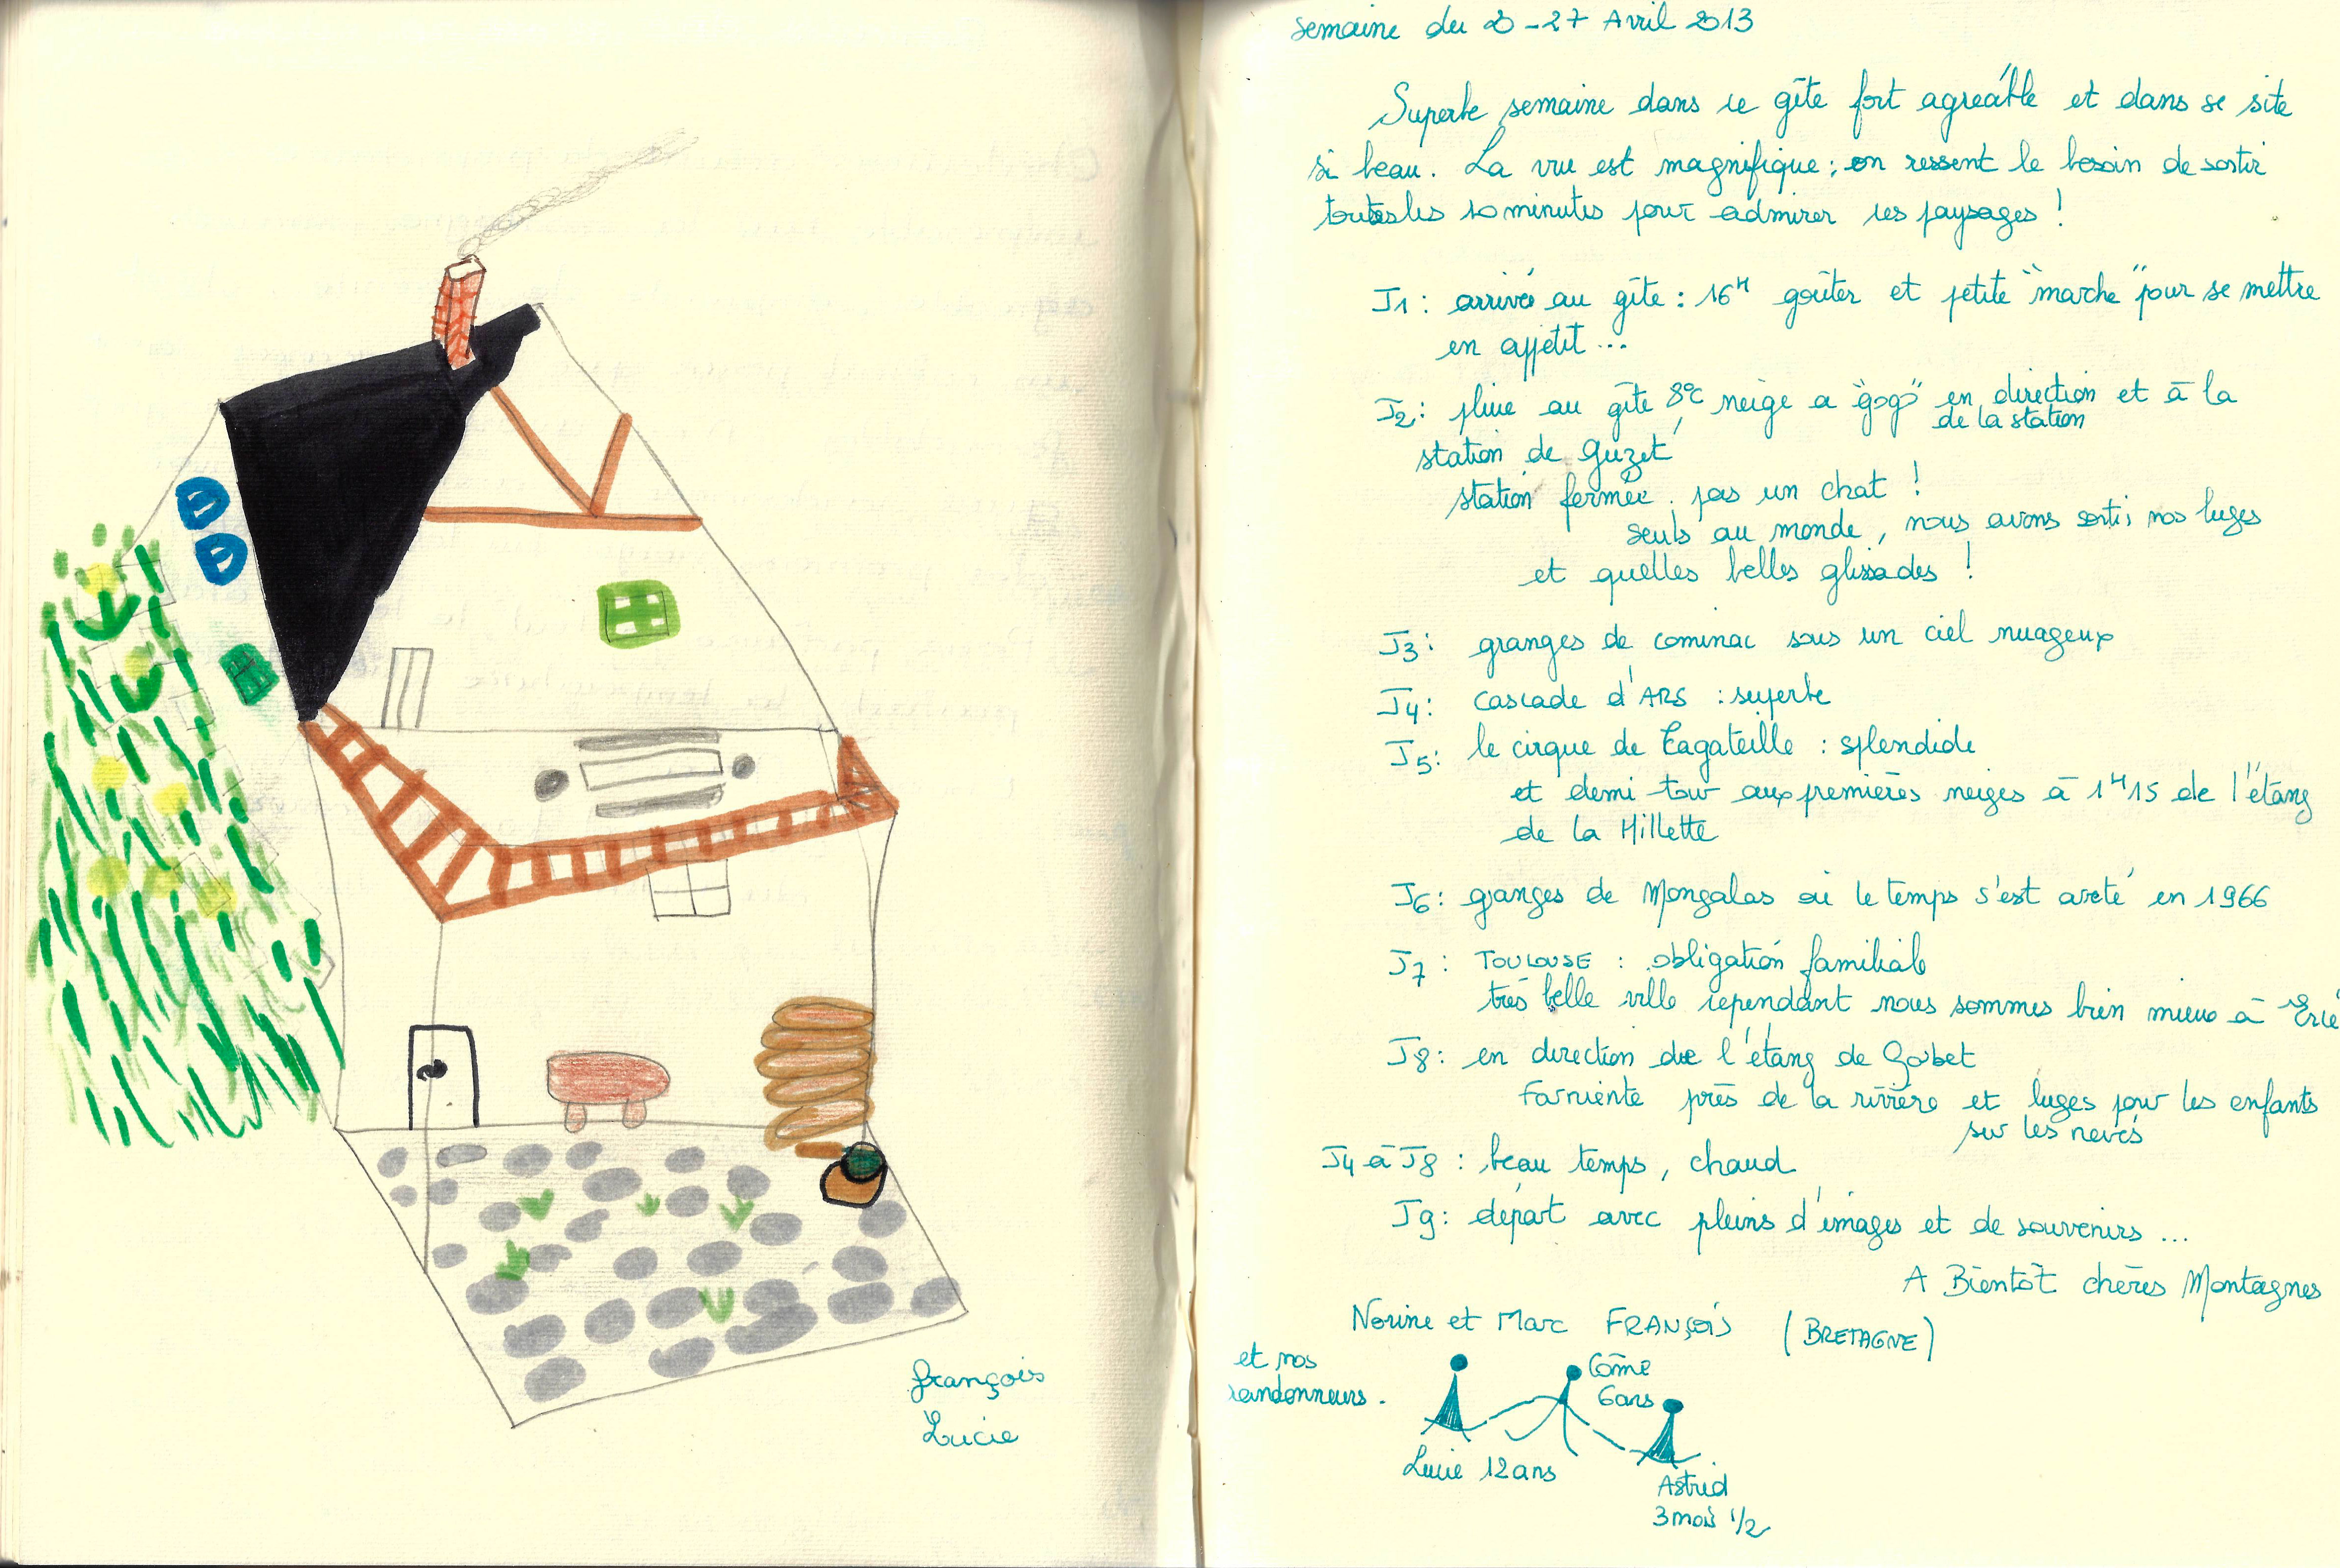 françois
Lucie
semaine du 20-27 Avril 2013
Superbe semaine dans ce gîte fort agréable et dans se site
si beau. La vue est magnifique ; on ressent le besoin de sortir
toutes les 10 minutes pour admirer ces paysages !
J1 : arrivée au gîte : 16H goûter et petite "marche" pour se mettre
en appétit ...
J2 : pluie au gîte 8°C, neige a "gogo" en direction et à la
de la station
station de Guzet
station fermée. pas un chat !
seuls au monde, nous avons sortis nos luges
et quelles belles glissades !
J3 : granges de cominac sous un ciel nuageux
J4 : cascade d'ARS : superbe
J5 : le cirque de Cagateille : splendide
et demi tour aux premières neiges à 1H15 de l'étang
de la Hillette
J6 : granges de Mongalas où le temps s'est areté en 1966
J7 : TOULOUSE : obligation familiale
très belle ville cependant nous sommes bien mieux à Ercé
J8 : en direction de l'étang de Garbet
Farniente près de la rivière et luges pour les enfants
sur les nevés
J4 à J8 : beau temps, chaud
J9 : départ avec pleins d'images et de souvenirs ...
A Bientôt chères Montagnes
Norine et Marc FRANÇOIS (BRETAGNE)
et nos
randonneurs.
Côme
6ans
Lucie 12ans
Astrid
3 mois 1/2